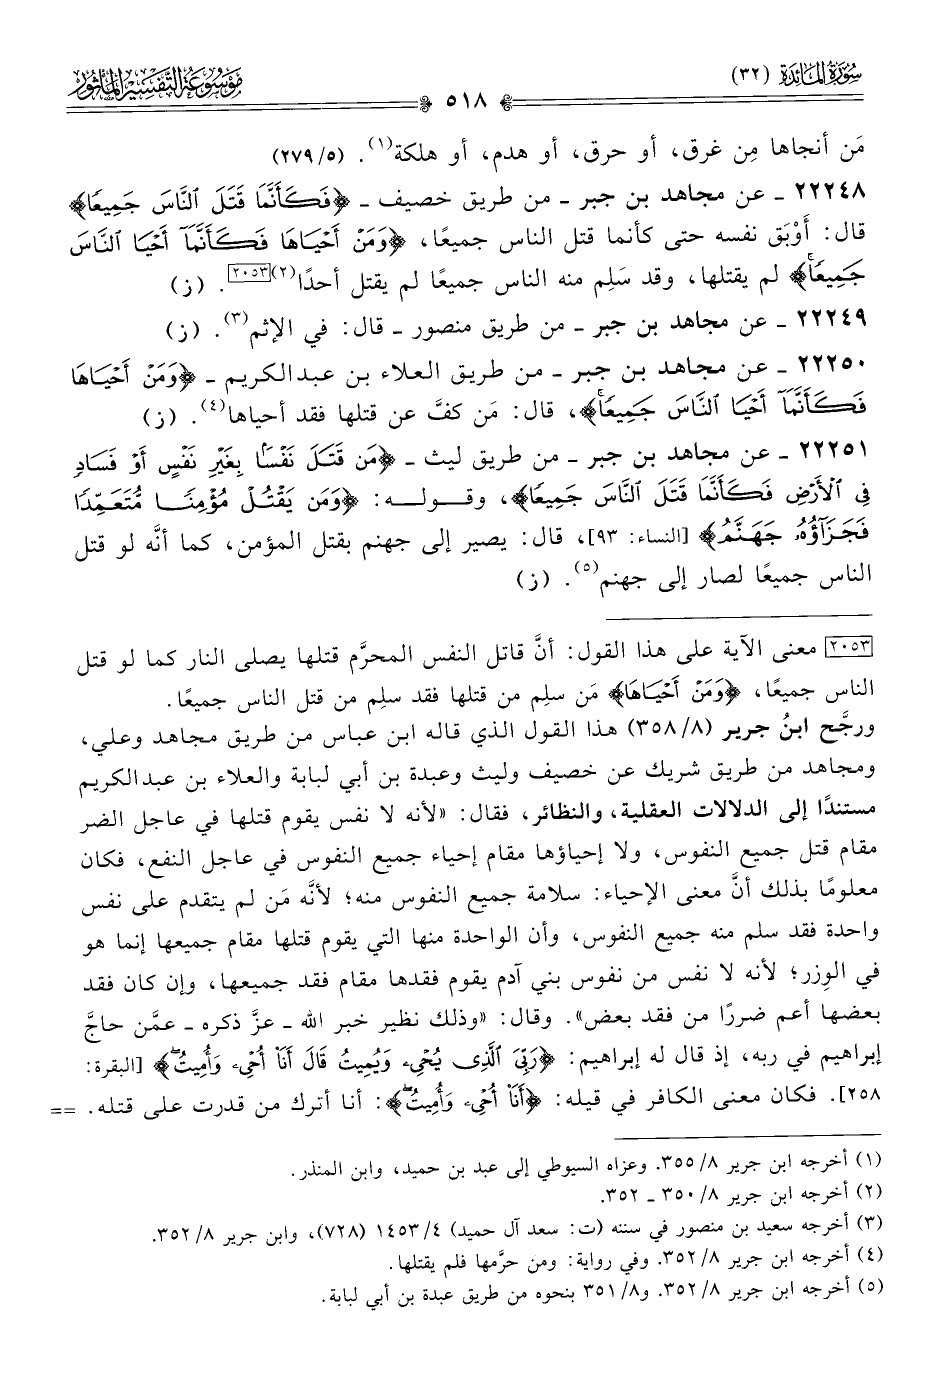 سُورَةُ المَائدَة (٣٢)
مَوْسُوعَةُ التَّفْسِيرِ المَأْثُورِ
٥١٨
مَن أنجاها مِن غرق، أو حرق، أو هدم، أو هلكة(١). (٢٧٩/٥)
٢٢٢٤٨ ـ عن مجاهد بن جبر ـ من طريق خصيف ـ ﴿فَكَأَنَّمَا قَتَلَ ٱلنَّاسَ جَمِيعًا﴾
قال: أَوْبَق نفسه حتى كأنما قتل الناس جميعًا، ﴿وَمَنْ أَحْيَاهَا فَكَأَنَّمَآ أَحْيَا ٱلنَّاسَ
جَمِيعًا﴾ لم يقتلها، وقد سَلِم منه الناس جميعًا لم يقتل أحدًا(٢)[٢٠٥٣]. (ز)
٢٢٢٤٩ ـ عن مجاهد بن جبر ـ من طريق منصور ـ قال: في الإثم(٣). (ز)
٢٢٢٥٠ ـ عن مجاهد بن جبر ـ من طريق العلاء بن عبدالكريم ـ ﴿وَمَنْ أَحْيَاهَا
فَكَأَنَّمَآ أَحْيَا ٱلنَّاسَ جَمِيعًا﴾، قال: مَن كفَّ عن قتلها فقد أحياها(٤). (ز)
٢٢٢٥١ ـ عن مجاهد بن جبر ـ من طريق ليث ـ ﴿مَن قَتَلَ نَفْسًا بِغَيْرِ نَفْسٍ أَوْ فَسَادٍ
فِى ٱلْأَرْضِ فَكَأَنَّمَا قَتَلَ ٱلنَّاسَ جَمِيعًا﴾، وقـولـه: ﴿وَمَن يَقْتُلْ مُؤْمِنًا مُّتَعَمِّدًا
فَجَزَآؤُهُۥ جَهَنَّمُ﴾ [النساء: ٩٣]، قال: يصير إلى جهنم بقتل المؤمن، كما أنَّه لو قتل
الناس جميعًا لصار إلى جهنم(٥). (ز)
[٢٠٥٣] معنى الآية على هذا القول: أنَّ قاتل النفس المحرَّم قتلها يصلى النار كما لو قتل
الناس جميعًا، ﴿وَمَنْ أَحْيَاهَا﴾ مَن سلِم من قتلها فقد سلِم من قتل الناس جميعًا.
ورجَّح ابنُ جرير (٣٥٨/٨) هذا القول الذي قاله ابن عباس من طريق مجاهد وعلي،
ومجاهد من طريق شريك عن خصيف وليث وعبدة بن أبي لبابة والعلاء بن عبدالكريم
مستندًا إلى الدلالات العقلية، والنظائر، فقال: «لأنه لا نفس يقوم قتلها في عاجل الضر
مقام قتل جميع النفوس، ولا إحياؤها مقام إحياء جميع النفوس في عاجل النفع، فكان
معلومًا بذلك أنَّ معنى الإحياء: سلامة جميع النفوس منه؛ لأنَّه مَن لم يتقدم على نفس
واحدة فقد سلم منه جميع النفوس، وأن الواحدة منها التي يقوم قتلها مقام جميعها إنما هو
في الوِزر؛ لأنه لا نفس من نفوس بني آدم يقوم فقدها مقام فقد جميعها، وإن كان فقد
بعضها أعم ضررًا من فقد بعض». وقال: «وذلك نظير خبر الله ـ عزَّ ذكره ـ عمَّن حاجَّ
إبراهيم في ربه، إذ قال له إبراهيم: ﴿رَبِّىَ ٱلَّذِى يُحْىِۦ وَيُمِيتُ قَالَ أَنَا۠ أُحْىِۦ وَأُمِيتُ﴾ [البقرة:
٢٥٨]. فكان معنى الكافر في قيله: ﴿أَنَا۠ أُحْىِۦ وَأُمِيتُ﴾: أنا أترك من قدرت على قتله. ==
(١) أخرجه ابن جرير ٨/ ٣٥٥. وعزاه السيوطي إلى عبد بن حميد، وابن المنذر.
(٢) أخرجه ابن جرير ٨/ ٣٥٠ ـ ٣٥٢.
(٣) أخرجه سعيد بن منصور في سننه (ت: سعد آل حميد) ٤/ ١٤٥٣ (٧٢٨)، وابن جرير ٨/ ٣٥٢.
(٤) أخرجه ابن جرير ٨/ ٣٥٢. وفي رواية: ومن حرَّمها فلم يقتلها.
(٥) أخرجه ابن جرير ٨/ ٣٥٢. و٨/ ٣٥١ بنحوه من طريق عبدة بن أبي لبابة.